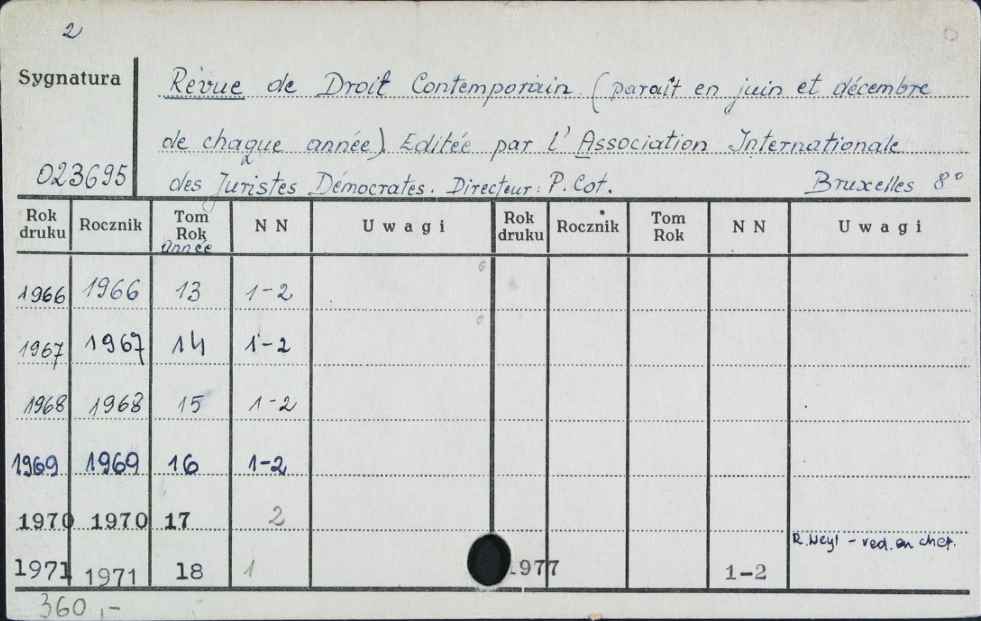 2
Sygnatura
023695
Révue de Droit Contemporain (paraît en juin et décembre
de chaque année). Editée par l'Association Internationale
des Juristes Démocrates. Directeur: P. Cot. Bruxelles 8°
Rok druku Rocznik Tom Rok année N N Uwagi Rok druku Rocznik Tom Rok N N Uwagi
1966 1966 13 1-2
1967 1967 14 1-2
1968 1968 15 1-2
1969 1969 16 1-2
1970 1970 17 2
R. Weyl - red. en chef.
1971 1971 18 1 1977 1-2
360,-